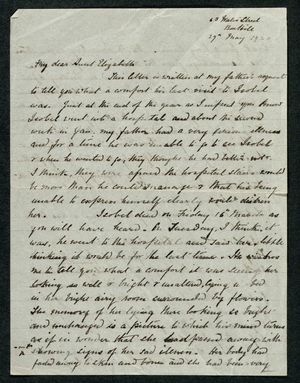 27th May
My dear Aunt Elizabeth
This letter is written at my father's request
to tell you what a comfort his last visit to Isobel
was. Just at the end of the year as I expect you know
Isobel went into a hospital and about the second
week in Jan. my father had a very serious illness
and for a time he was unable to go to see Isobel
& when he wanted to go, they thought he had better not.
I think they were afraid the hospital stairs would
be more than he could manage & that his being
unable to express himself clearly would distress
her. Isobel died on Friday 16th as
you will have heard. On Tuesday, I think it
was, he went to the hospital and saw her, little
thinking it would be for the last time. He wishes
me to tell you what a comfort it was seeing her
looking so well & bright & unaltered, lying in bed
in her bright airy room surrounded by flowers.
The memory of her lying there looking so bright
and unchanged is a picture to which his mind turns
as if in wonder that she had passed away with
showing signs of her sad illness. Her body had
faded away to skin and bone and she had been very